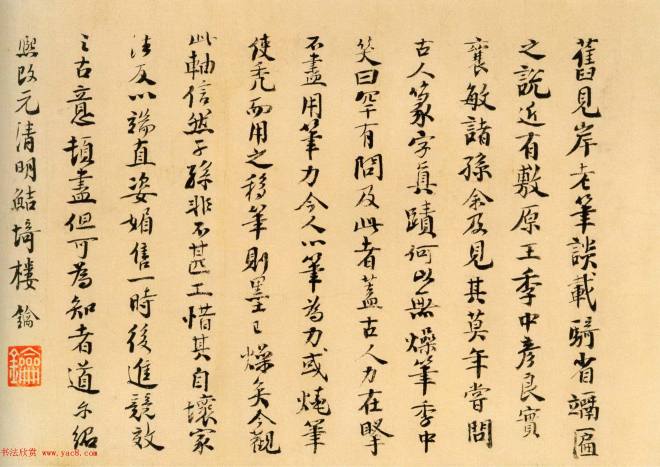 舊見岸老筆談載騎省𧤼匾
之說近有敷原王季中彥良實
襄敏諸孫余及見其莫年嘗問
古人篆字真蹟何以無燥筆季中
笑曰罕有問及此者蓋古人力在掔
不盡用筆力今人以筆為力或燒筆
使禿而用之移筆則墨已燥矣今觀
此軸信然子孫非不甚工惜其自壞家
法反以端直姿媚售一時後進競效
之古意頓盡但可為知者道尔紹
熙改元清明鮚埼樓鑰
鑰
书法欣赏 www.yac8.com